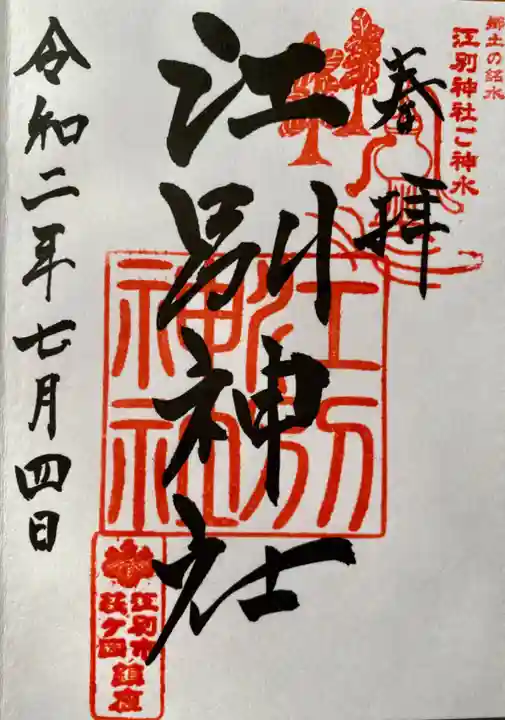 郷土の銘水
江別神社ご神水
奉拝
江別神社
江別神社
江別市
萩ヶ岡鎮座
令和二年七月四日